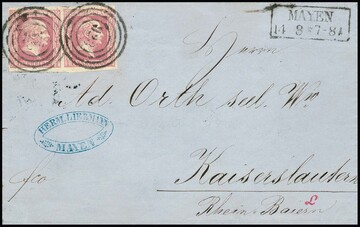 MAYEN
14 8 * 7-8 A
Herrn
Ad. Orth sel. Wwe
HERM. LIEBMANN
MAYEN
fco
Kaiserslautern
Rhein-Baiern